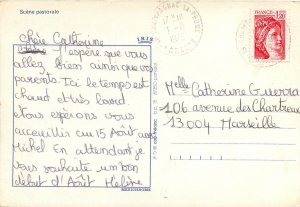 Scène pastorale
Chère Catherine
J'espère que vous
allez bien ainsi que vos
parents. Ici le temps est
chaud et très lourd.
Nous espérons vous
accueillir au 15 Août avec
Michel. En attendant je
vous souhaite un bon
début d'Août Hélène
IRIS
FRANCE
1,20
Melle Catherine Guerra
106 avenue des Chartreux
13004 Marseille